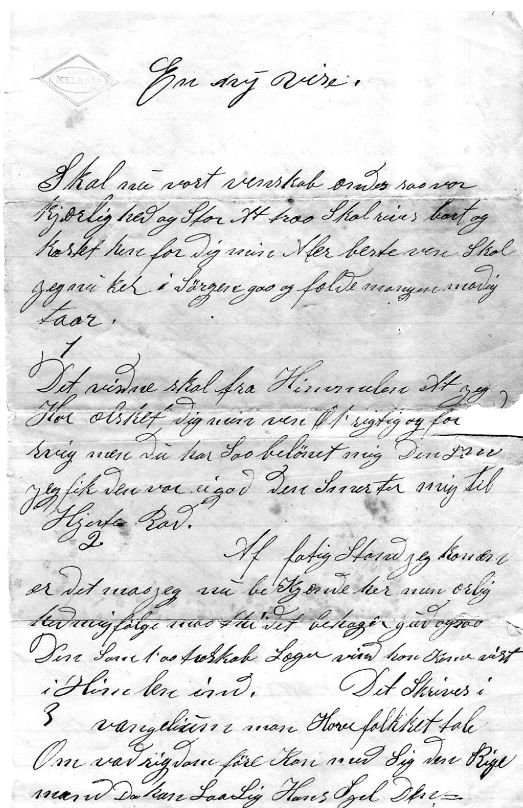 MELROSE
En ny vise.
Skal nu vort venskab ændes saa vor
kjærlighed og Stor At troo Skal rives bort og
kastet hen for dig min Aler beste ven Skal
jeg nu her i Sørgen gaa og fælde mangen modig
taar.
1
Det vidne skal fra Himmelen At jeg
Har elsket dig min ven og for
svig men du har Saa belönet mig Den
jeg fik den var ei god Den Smerter mig til
Hjerte Rod.
2
Af fatig Stand jeg komen
er det maa jeg nu bekjænde her men ærlig
hed mig følge maa thi det behager gud ogsaa
Den Som Lager vind han Kome vist
i Himlen ind. Det Skrives i
3 vangelium man Hore folkket tale
Om vad rigdom före Kan med Sig den Rige
mand Da kan Saa Lig Hans Sjel Den=